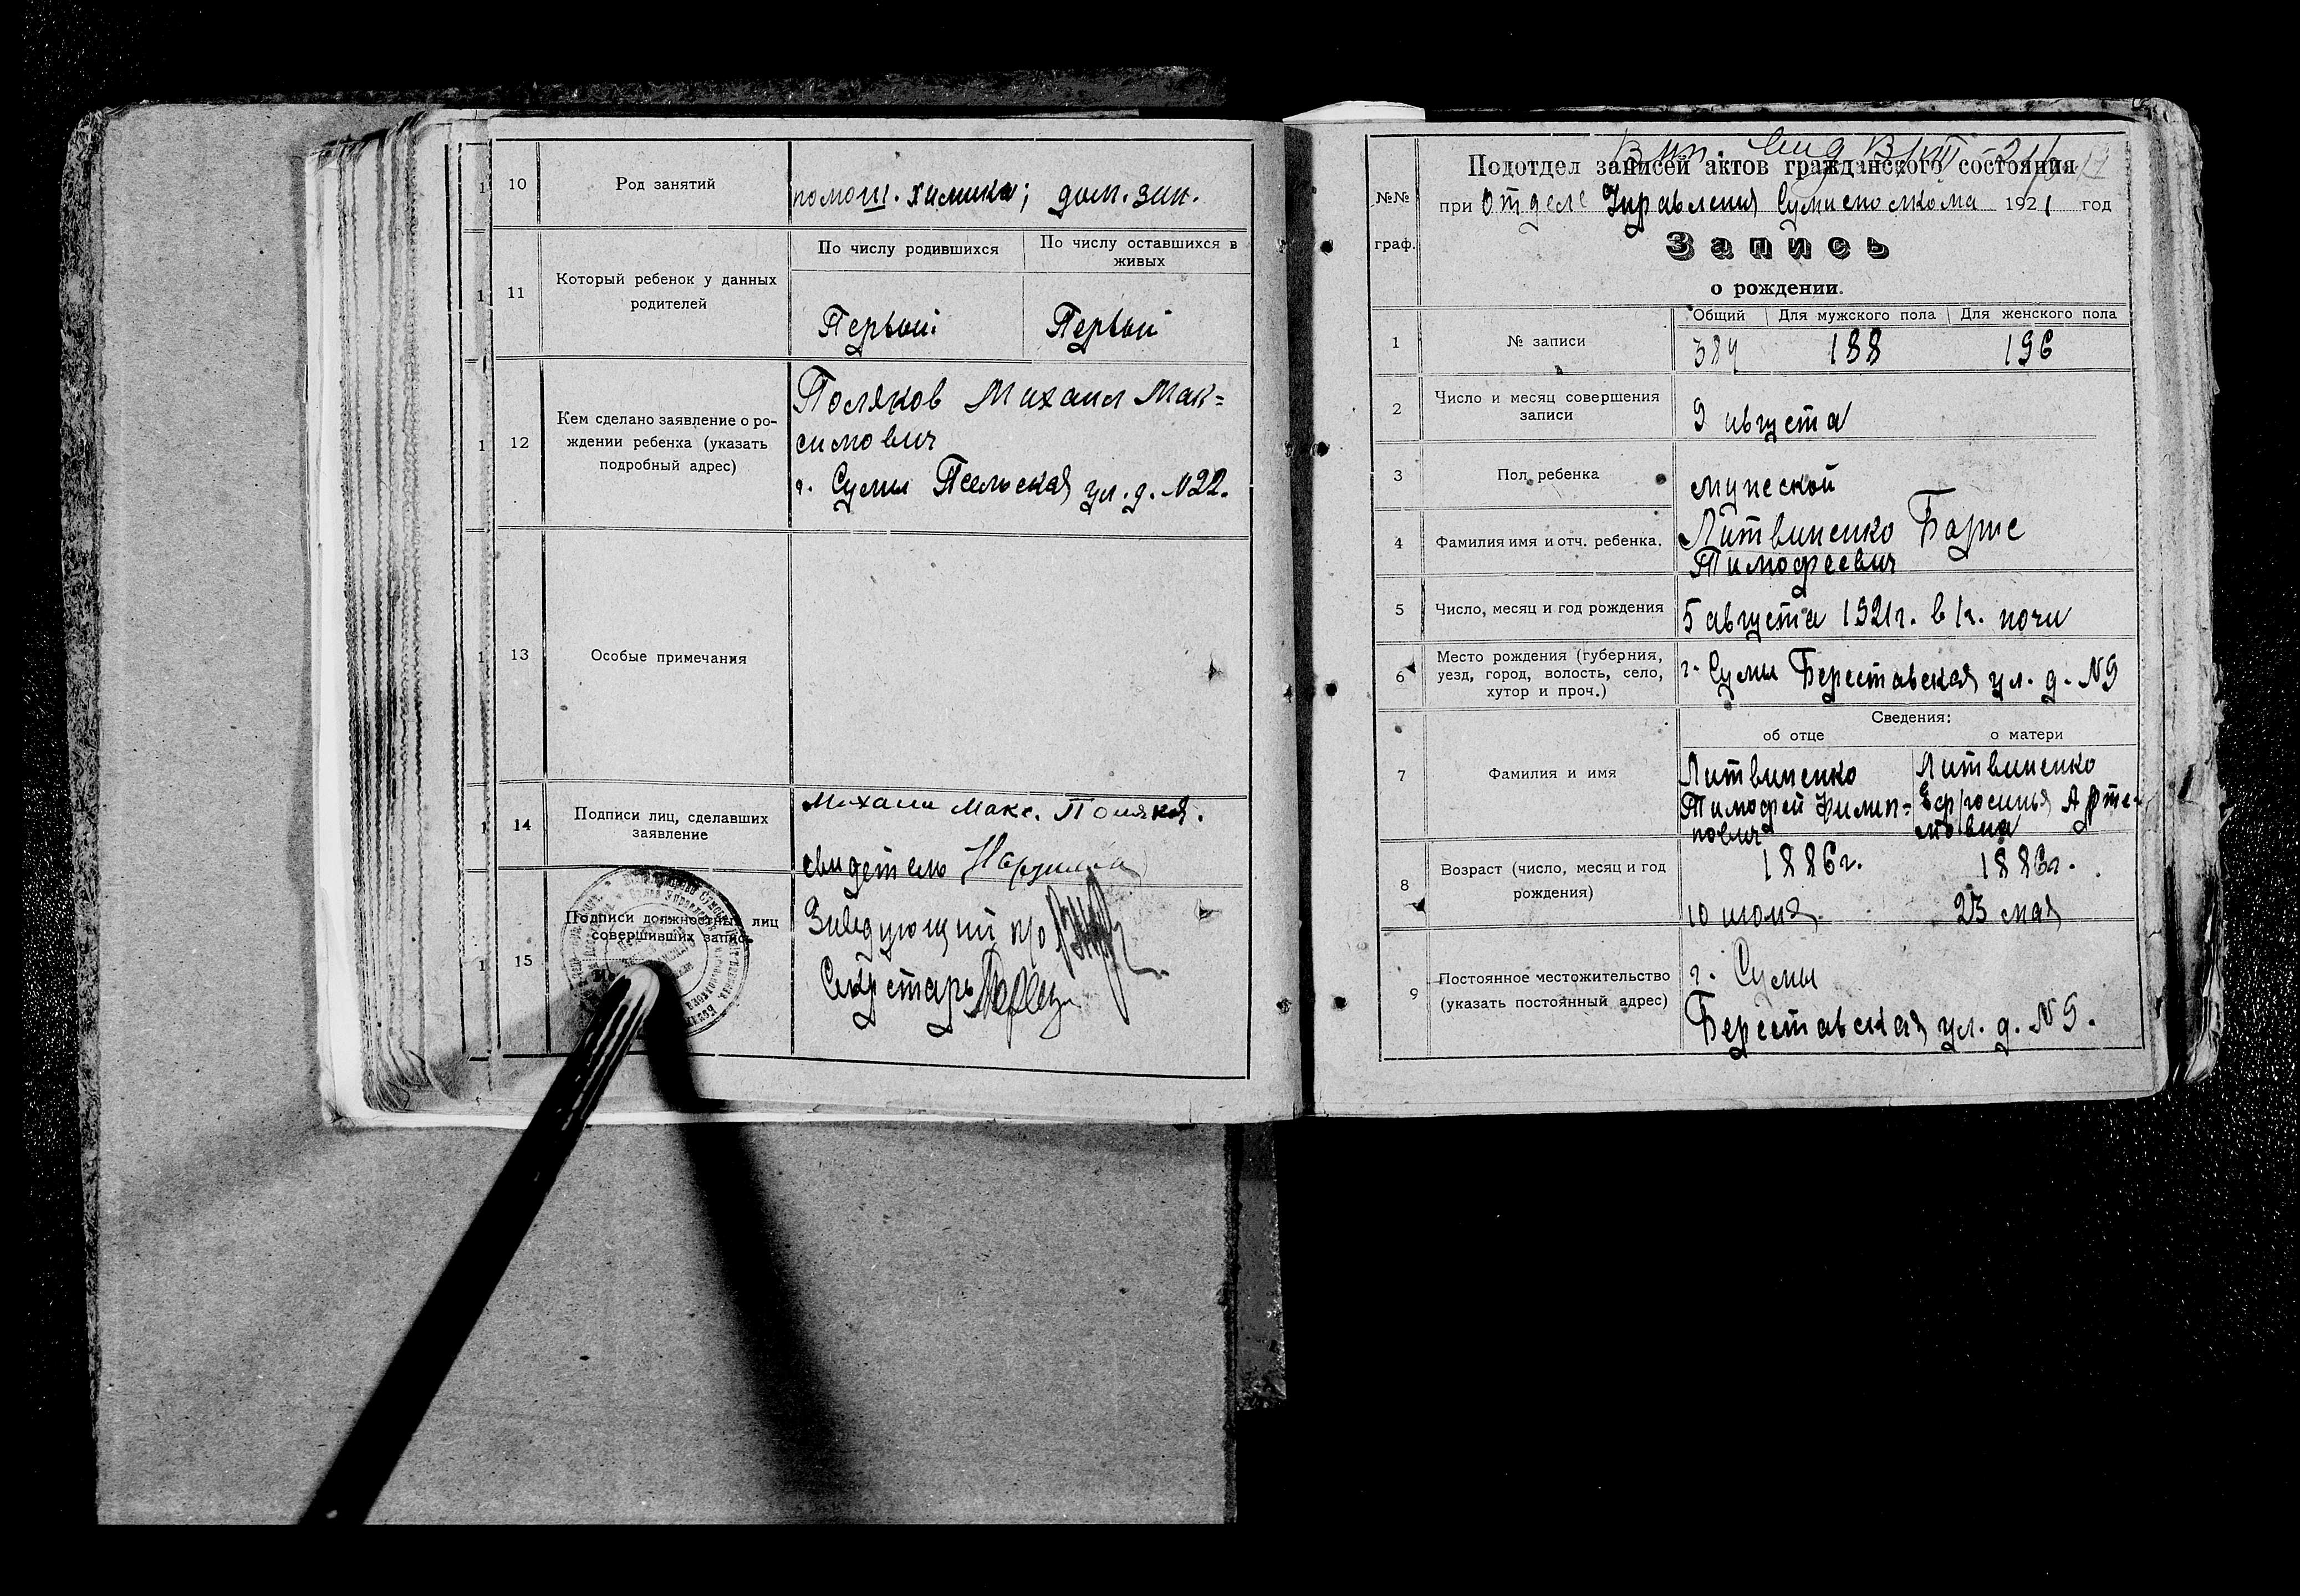 10
Род занятий
помощ. химика; дом. зан.
11
Который ребенок у данных
родителей
По числу родившихся
По числу оставшихся в
живых
Первый
Первый
12
Кем сделано заявление о ро-
ждении ребенка (указать
подробный адрес)
Поляков Михаил Мак=
симович
г. Сумы Псельская ул. д. №22.
13
Особые примечания
14
Подписи лиц, сделавших
заявление
Михаил Макс. Поляков.
свидетель
15
Подписи должностных лиц
совершивших запись
Заведующий п/о
Секретарь
№№
граф.
Подотдел записей актов гражданского состояния
при Отделе Управления Сумисполкома 1921 год
Запись
о рождении.
1
№ записи
Общий
Для мужского пола
Для женского пола
384
188
196
2
Число и месяц совершения
записи
9 августа
3
Пол ребенка
мужской
4
Фамилия имя и отч. ребенка.
Литвиненко Борис
Тимофеевич
5
Число, месяц и год рождения
5 августа 1921г. в 1ч. ночи
6
Место рождения (губерния,
уезд, город, волость, село,
хутор и проч.)
г. Сумы Берестовская ул. д. №9
Сведения:
об отце
о матери
7
Фамилия и имя
Литвиненко
Тимофей Филип=
пович
Литвиненко
Ефросинья Арте-
мовна
8
Возраст (число, месяц и год
рождения)
1886г.
10 июня
1886г.
23 мая
9
Постоянное местожительство
(указать постоянный адрес)
г. Сумы
Берестовская ул. д. №9.